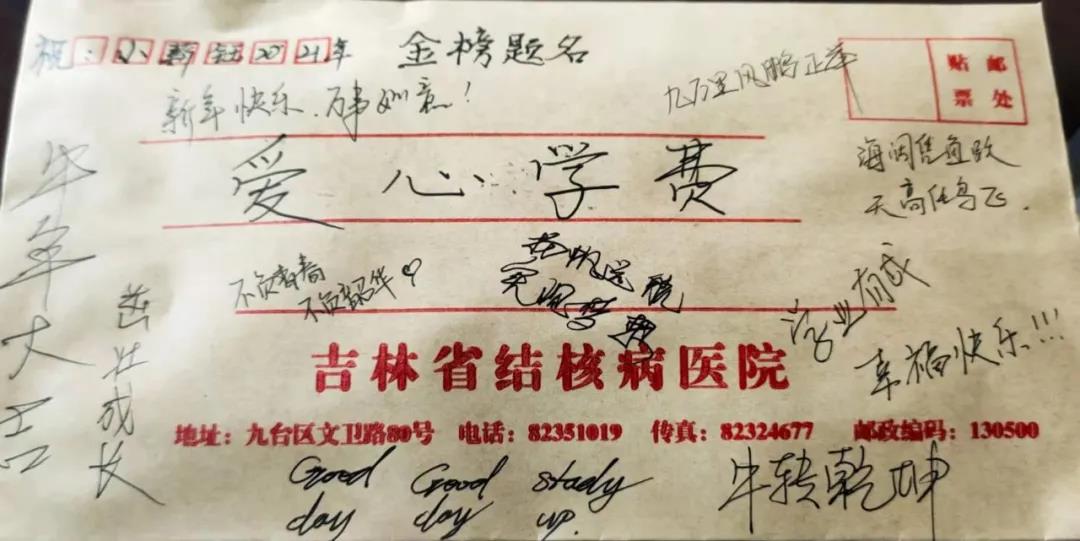 祝:小新钰2021年 金榜题名
九万里风鹏正举
贴邮
票处
新年快乐.万事如意!
爱心学费
海阔凭鱼跃
天高任鸟飞.
牛年大吉
茁壮成长
不负青春
不负韶华♡
学业有成
幸福快乐!!!
吉林省结核病医院
地址:九台区文卫路80号 电话:82351019 传真:82324677 邮政编码:130500
Good Good study
day day up.
牛转乾坤